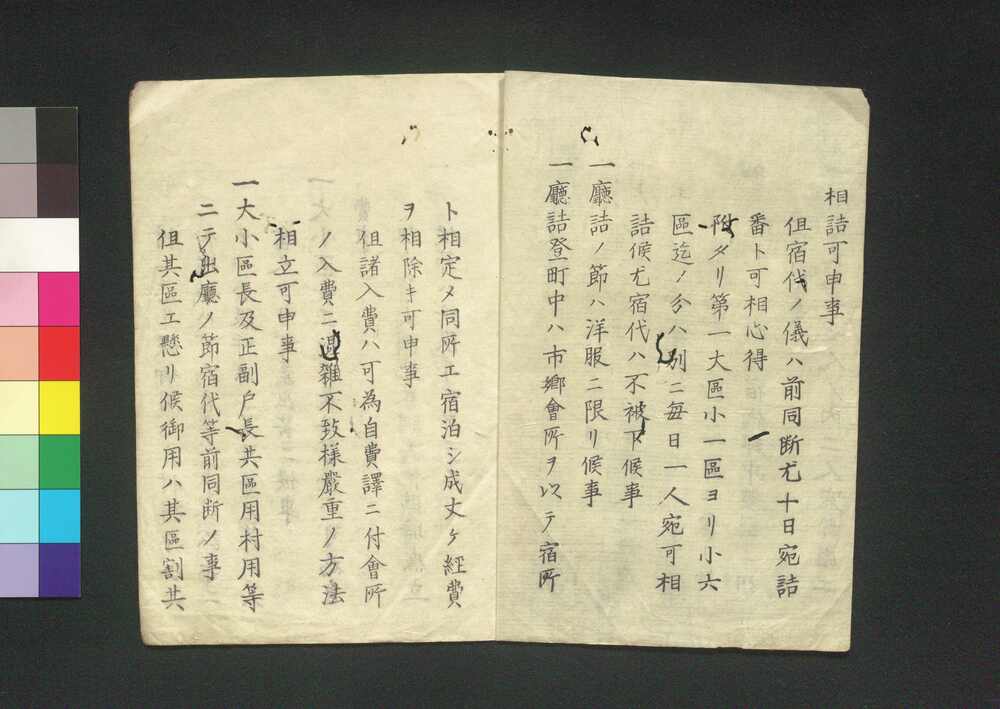 相詰可申事
但宿代ノ儀ハ前同断尤十日宛詰
番ト可相心得
附タリ第一大區小一區ヨリ小六
區迄ノ分ハ別ニ毎日一人宛可相
詰候尤宿代ハ不被下候事
一廳詰ノ節ハ洋服ニ限リ候事
一廳詰登町中ハ市郷會所ヲ以テ宿所
ト相定メ同所エ宿泊シ成丈ケ經費
ヲ相除キ可申事
但諸入費ハ可為自費譯ニ付會所
ノ入費ニ混雑不致様嚴重ノ方法
相立可申事
一大小區長及正副戸長共區用村用等
ニテ出廳ノ節宿代等前同断ノ事
但其區エ懸リ候御用ハ其區割共